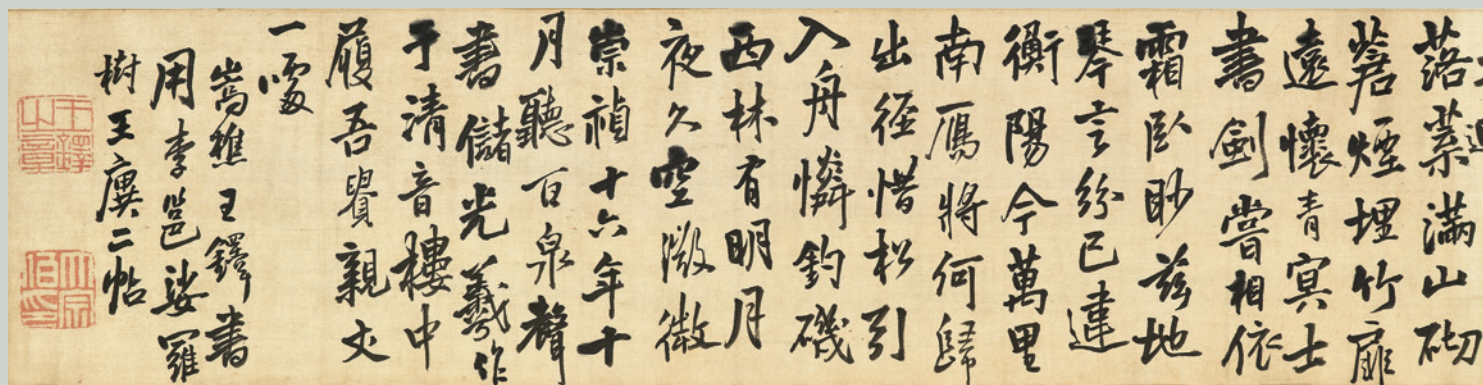 落葉滿山砌
蒼煙埋竹扉
遠懷青冥士
書劍嘗相依
霜臥眇茲地
琴言紛已違
衡陽今萬里
南鴈將何歸
出徑惜松引
入舟憐釣磯
西林有明月
夜久空微微
崇禎十六年十
月聽百泉聲
書儲光羲作
于清音樓中
履吾親丈
一噱
嵩樵王鐸書
用李邕娑羅
樹王廙二帖
王鐸之章
大宗伯印